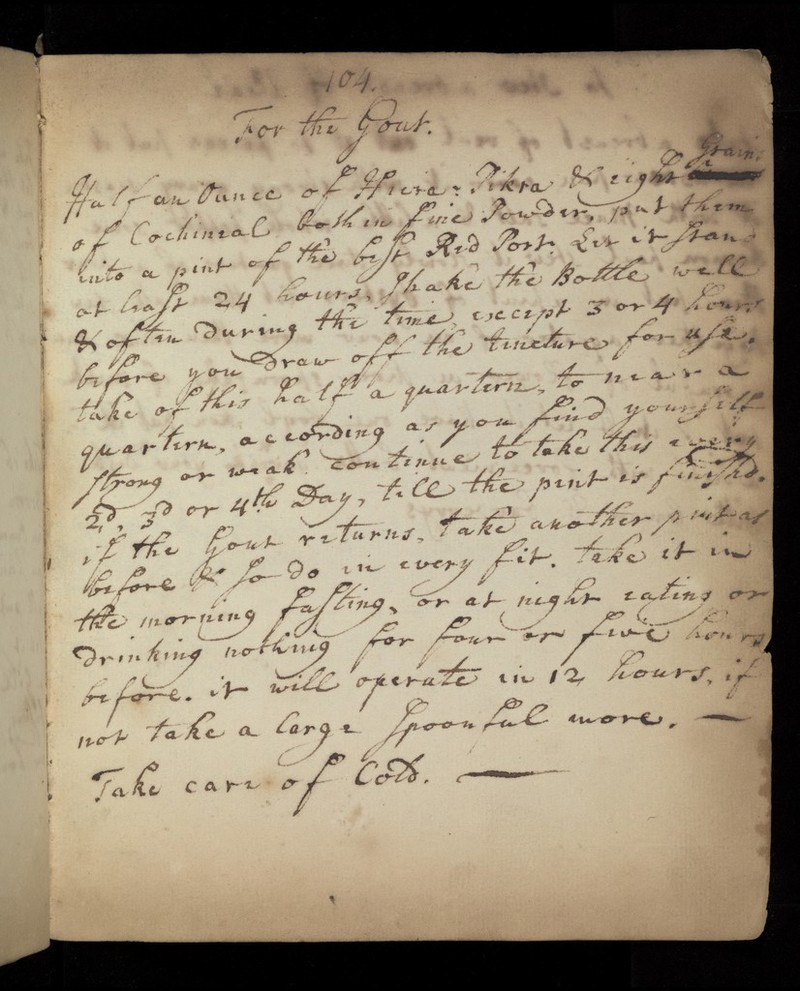 104.
For the Gout.
Grains
Half an Ounce of Hiera = Pikra & eight
of Cochineal both in fine Powder, put them
into a pint of the best Red Port. Let it stand
at least 24 hours, Shake the Bottle well
& often during the time, except 3 or 4 hours
before you Draw off the tincture for use.
take of this half a quartern, to near a
quartern, according as you find yourself
strong or weak. continue to take this every
2d, 3d or 4th Day, till the pint is finishd.
if the Gout returns, take another pint as
before & so do in every fit. take it in
the morning fasting, or at night eating or
drinking nothing for four or five hours
before. it will operate in 12 hours, if
not take a large spoonful more. —
Take care of Cold. —